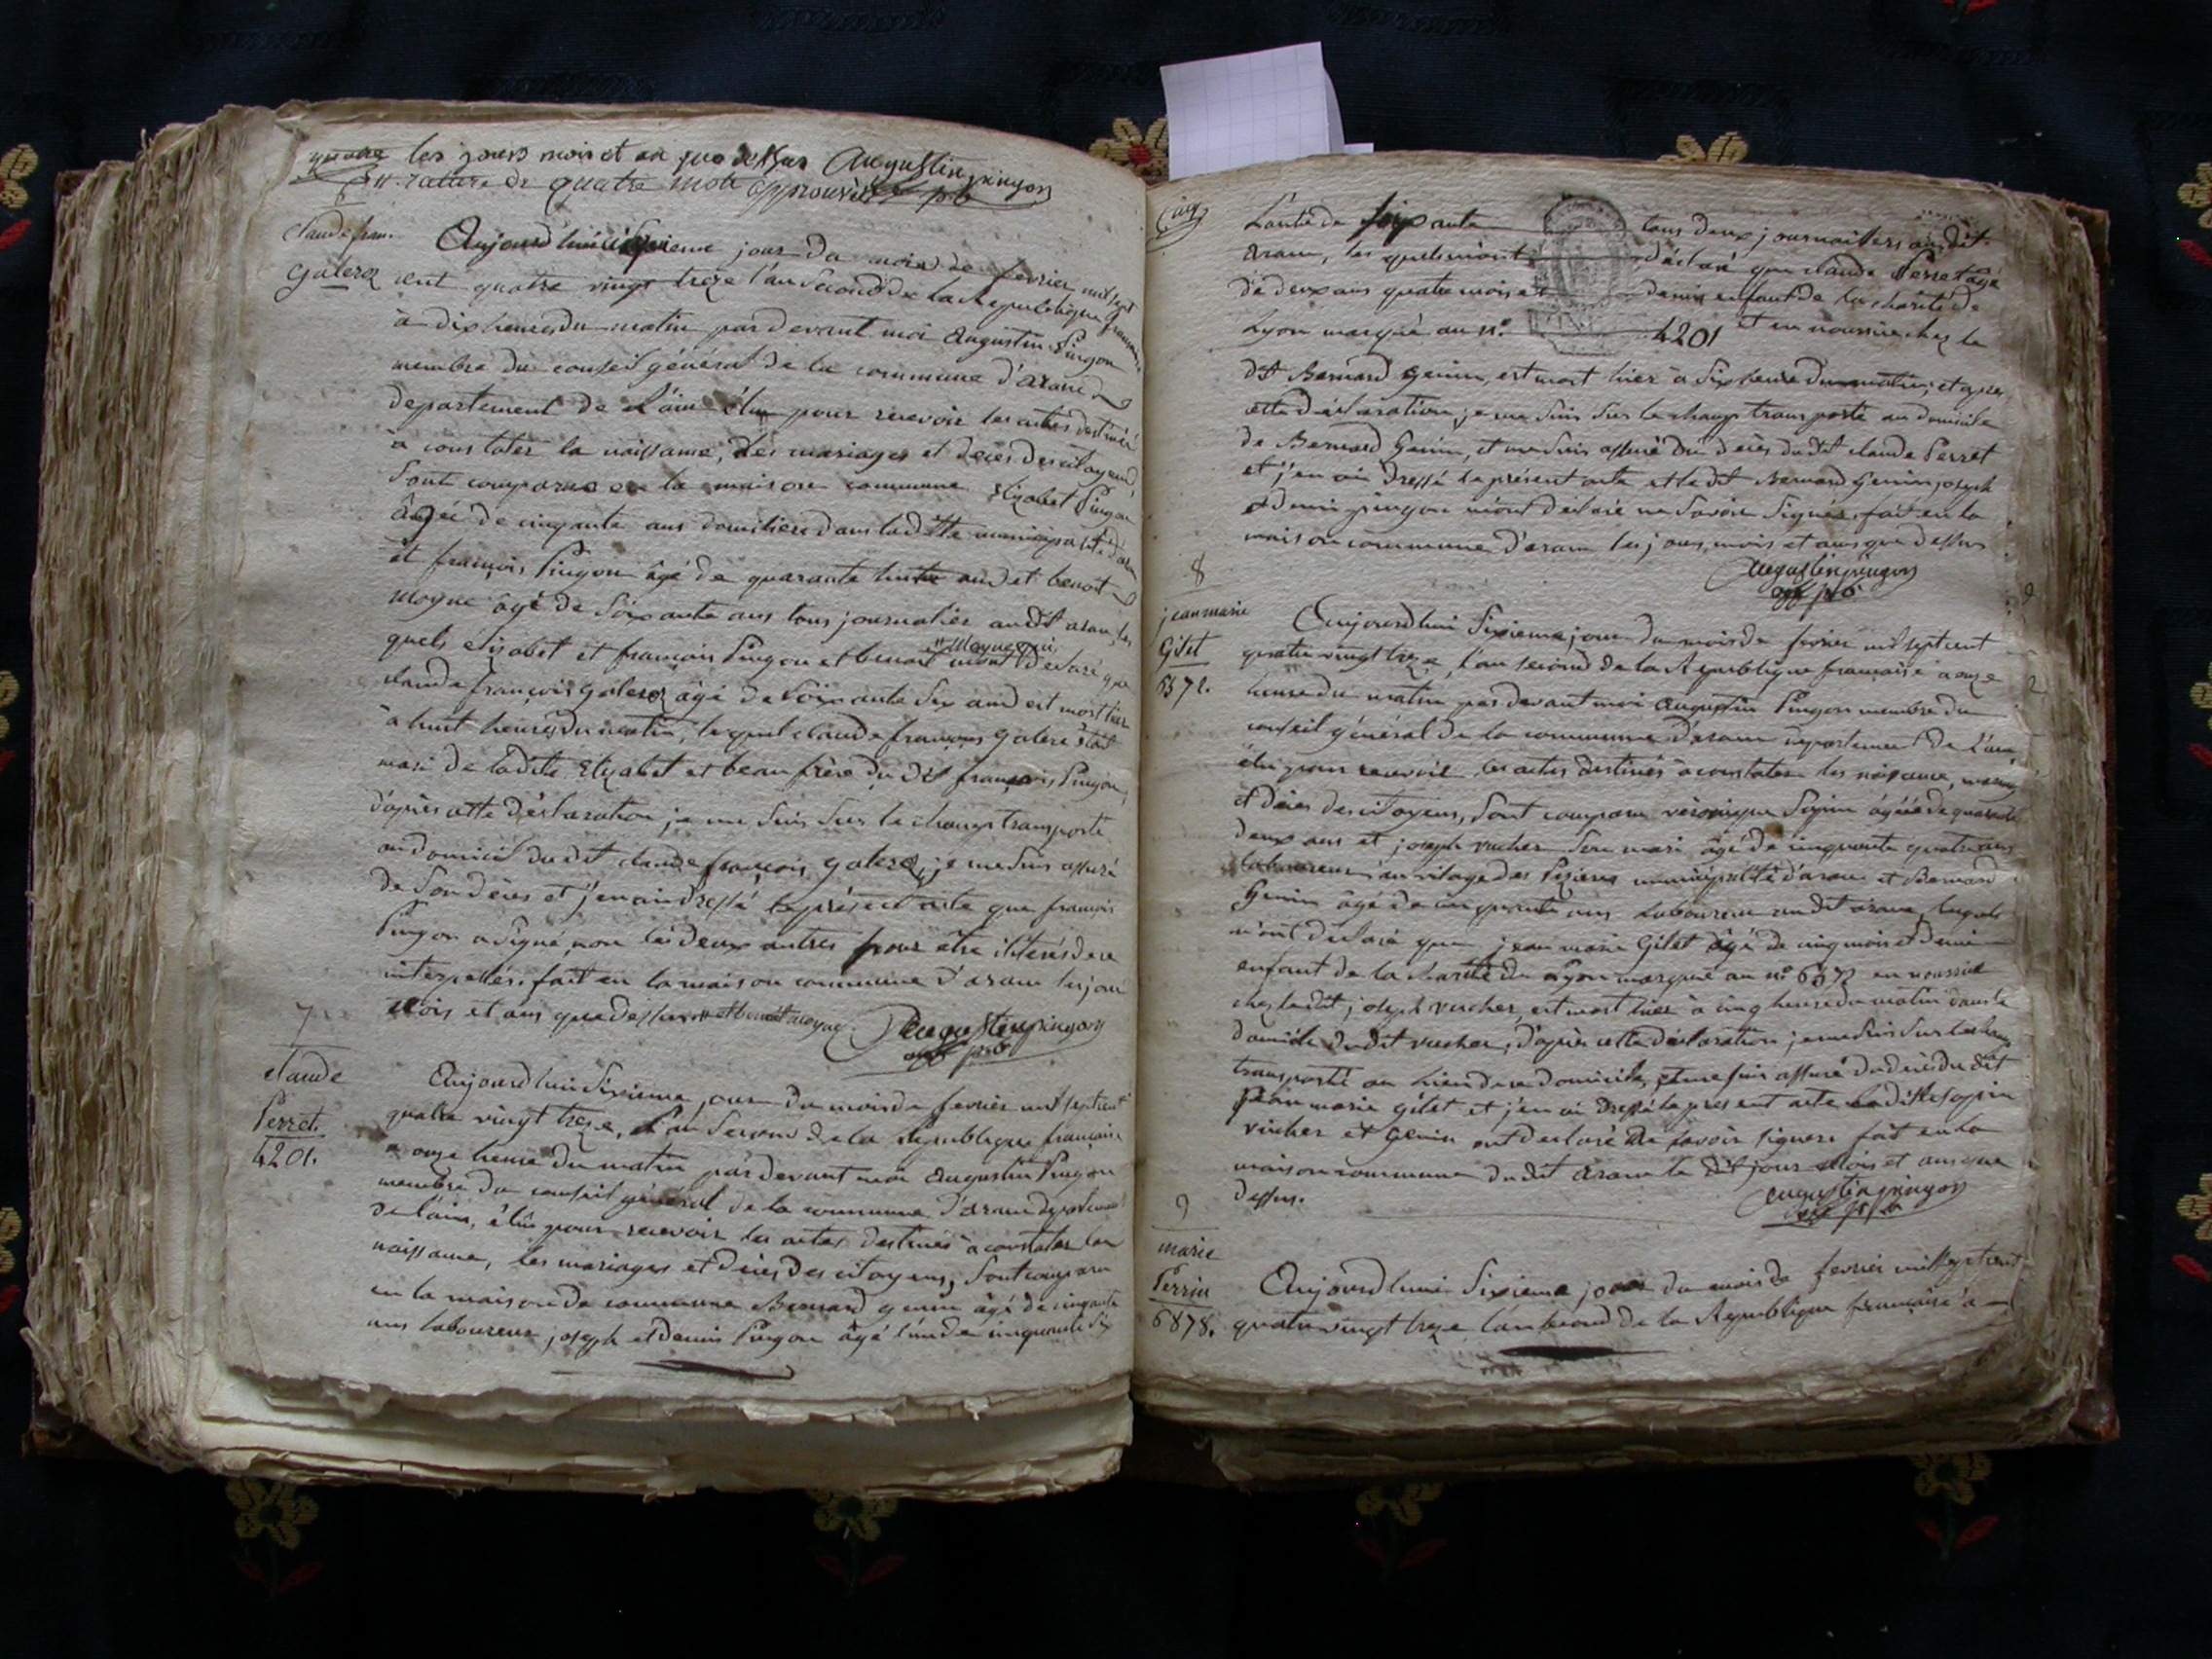 les jours mois et an que dessus Augustin pingon
rature de quatre mots approuvée
claude fran.
galere
Aujourd'hui sixieme jour du mois de fevrier mil sept
cent quatre vingt treze l'an second de la Republique francaise
à dix heures du matin par devant moi Augustin Pingon
membre du conseil général de la commune d'arane
departement de l'ain élu pour recevoir les actes destinés
à constater la naissance, les mariages et décès des citoyens
sont comparus en la maison commune Elizabet Pingon
âgée de cinquante ans domiciliée dans la ditte municipalité d'aran
et françois Pingon âgé de quarante huit ans et benoit
moyne âgé de soixante ans tous journalier audit aran, les
quels elisabet et françois Pingon et benoit moyne m'ont déclaré que
claude françois galere âgé de soixante six ans est mort hier
à huit heures du matin, lequel claude françois galere étoit
mari de ladite Elyzabet et beau frère du dit françois Pingon,
d'après cette déclaration, je me suis sur le champ transporté
au domicile du dit claude françois galere, je me suis assuré
de son décès et j'en ai dressé le présent acte que françois
Pingon a signé non les deux autres pour être illiterés de ce
interpellés. fait en la maison commune d'aran les jour
mois et ans que dessus et benoit moyne Augustin pingon
7
claude
Perret.
4201.
Aujourd'hui sixieme jour du mois de fevrier mil sept cent
quatre vingt treze, l'an second de la Republique française
a onze heure du matin par devant moi Augustin Pingon
membre du conseil général de la commune d'aran departement
de l'ain, élu pour recevoir les actes destinés à constater la
naissance, les mariages et décès des citoyens, sont comparu
en la maison de commune Bernard genin âgé de cinquante
ans laboureur, joseph et denis Pingon âgé l'un de cinquante six
l'autre de soixante tous deux journaliers audit
arane, les quels m'ont déclaré que claude Perret âgé
de deux ans quatre mois et demi enfant de la charité de
Lyon marqué au n° 4201 et en nourrice chez le
dit Bernard genin, est mort hier à six heure du matin, et après
cette déclaration, je me suis sur le champ transporté au domicile
de Bernard Genin, et me suis assuré du décès dudit claude Perret
et j'en ai dressé le présent acte et ledit Bernard Genin joseph
et denis pingon m'ont déclaré ne savoir signer, fait en la
maison commune d'aran les jours, mois et ans que dessus
Augustin pingon
8
jean marie
Gilet
6372.
Aujourd'hui sixieme jour du mois de fevrier mil sept cent
quatre vingt treze, l'an second de la Republique francaise à onze
heure du matin par devant moi Augustin Pingon membre du
conseil général de la commune d'aran departement de l'ain
élu pour recevoir les actes destinés à constater les naissance, mariag
et décès des citoyens, sont comparu véronique Sapin âgée de quarante
deux ans et joseph vucher son mari âgé de cinquante quatre ans
laboureur au vilage des municipalité d'aran et Bernard
Genin âgé de cinquante ans laboureur audit arane, lesquels
m'ont déclaré que jean marie Gilet âgé de cinq mois et demi
enfant de la charité de Lyon marqué au n° 6372 en nourrice
chez ledit joseph vucher, est mort hier à cinq heure du matin dans le
domicile dudit vucher, d'après cette déclaration je me suis sur le champ
transporté au lieu de ce domicile, et me suis assuré du décès du dit
jean marie gilet et j'en ai dressé le present acte ladite Sapin
vucher et Genin ont declaré ne savoir signer. fait en la
maison commune dudit arane le dit jour mois et ans que
dessus.
Augustin pingon
9
marie
Perrin
6878.
Aujourd'hui sixieme jour du mois de fevrier mil sept cent
quatre vingt treze l'an second de la Republique francaise à